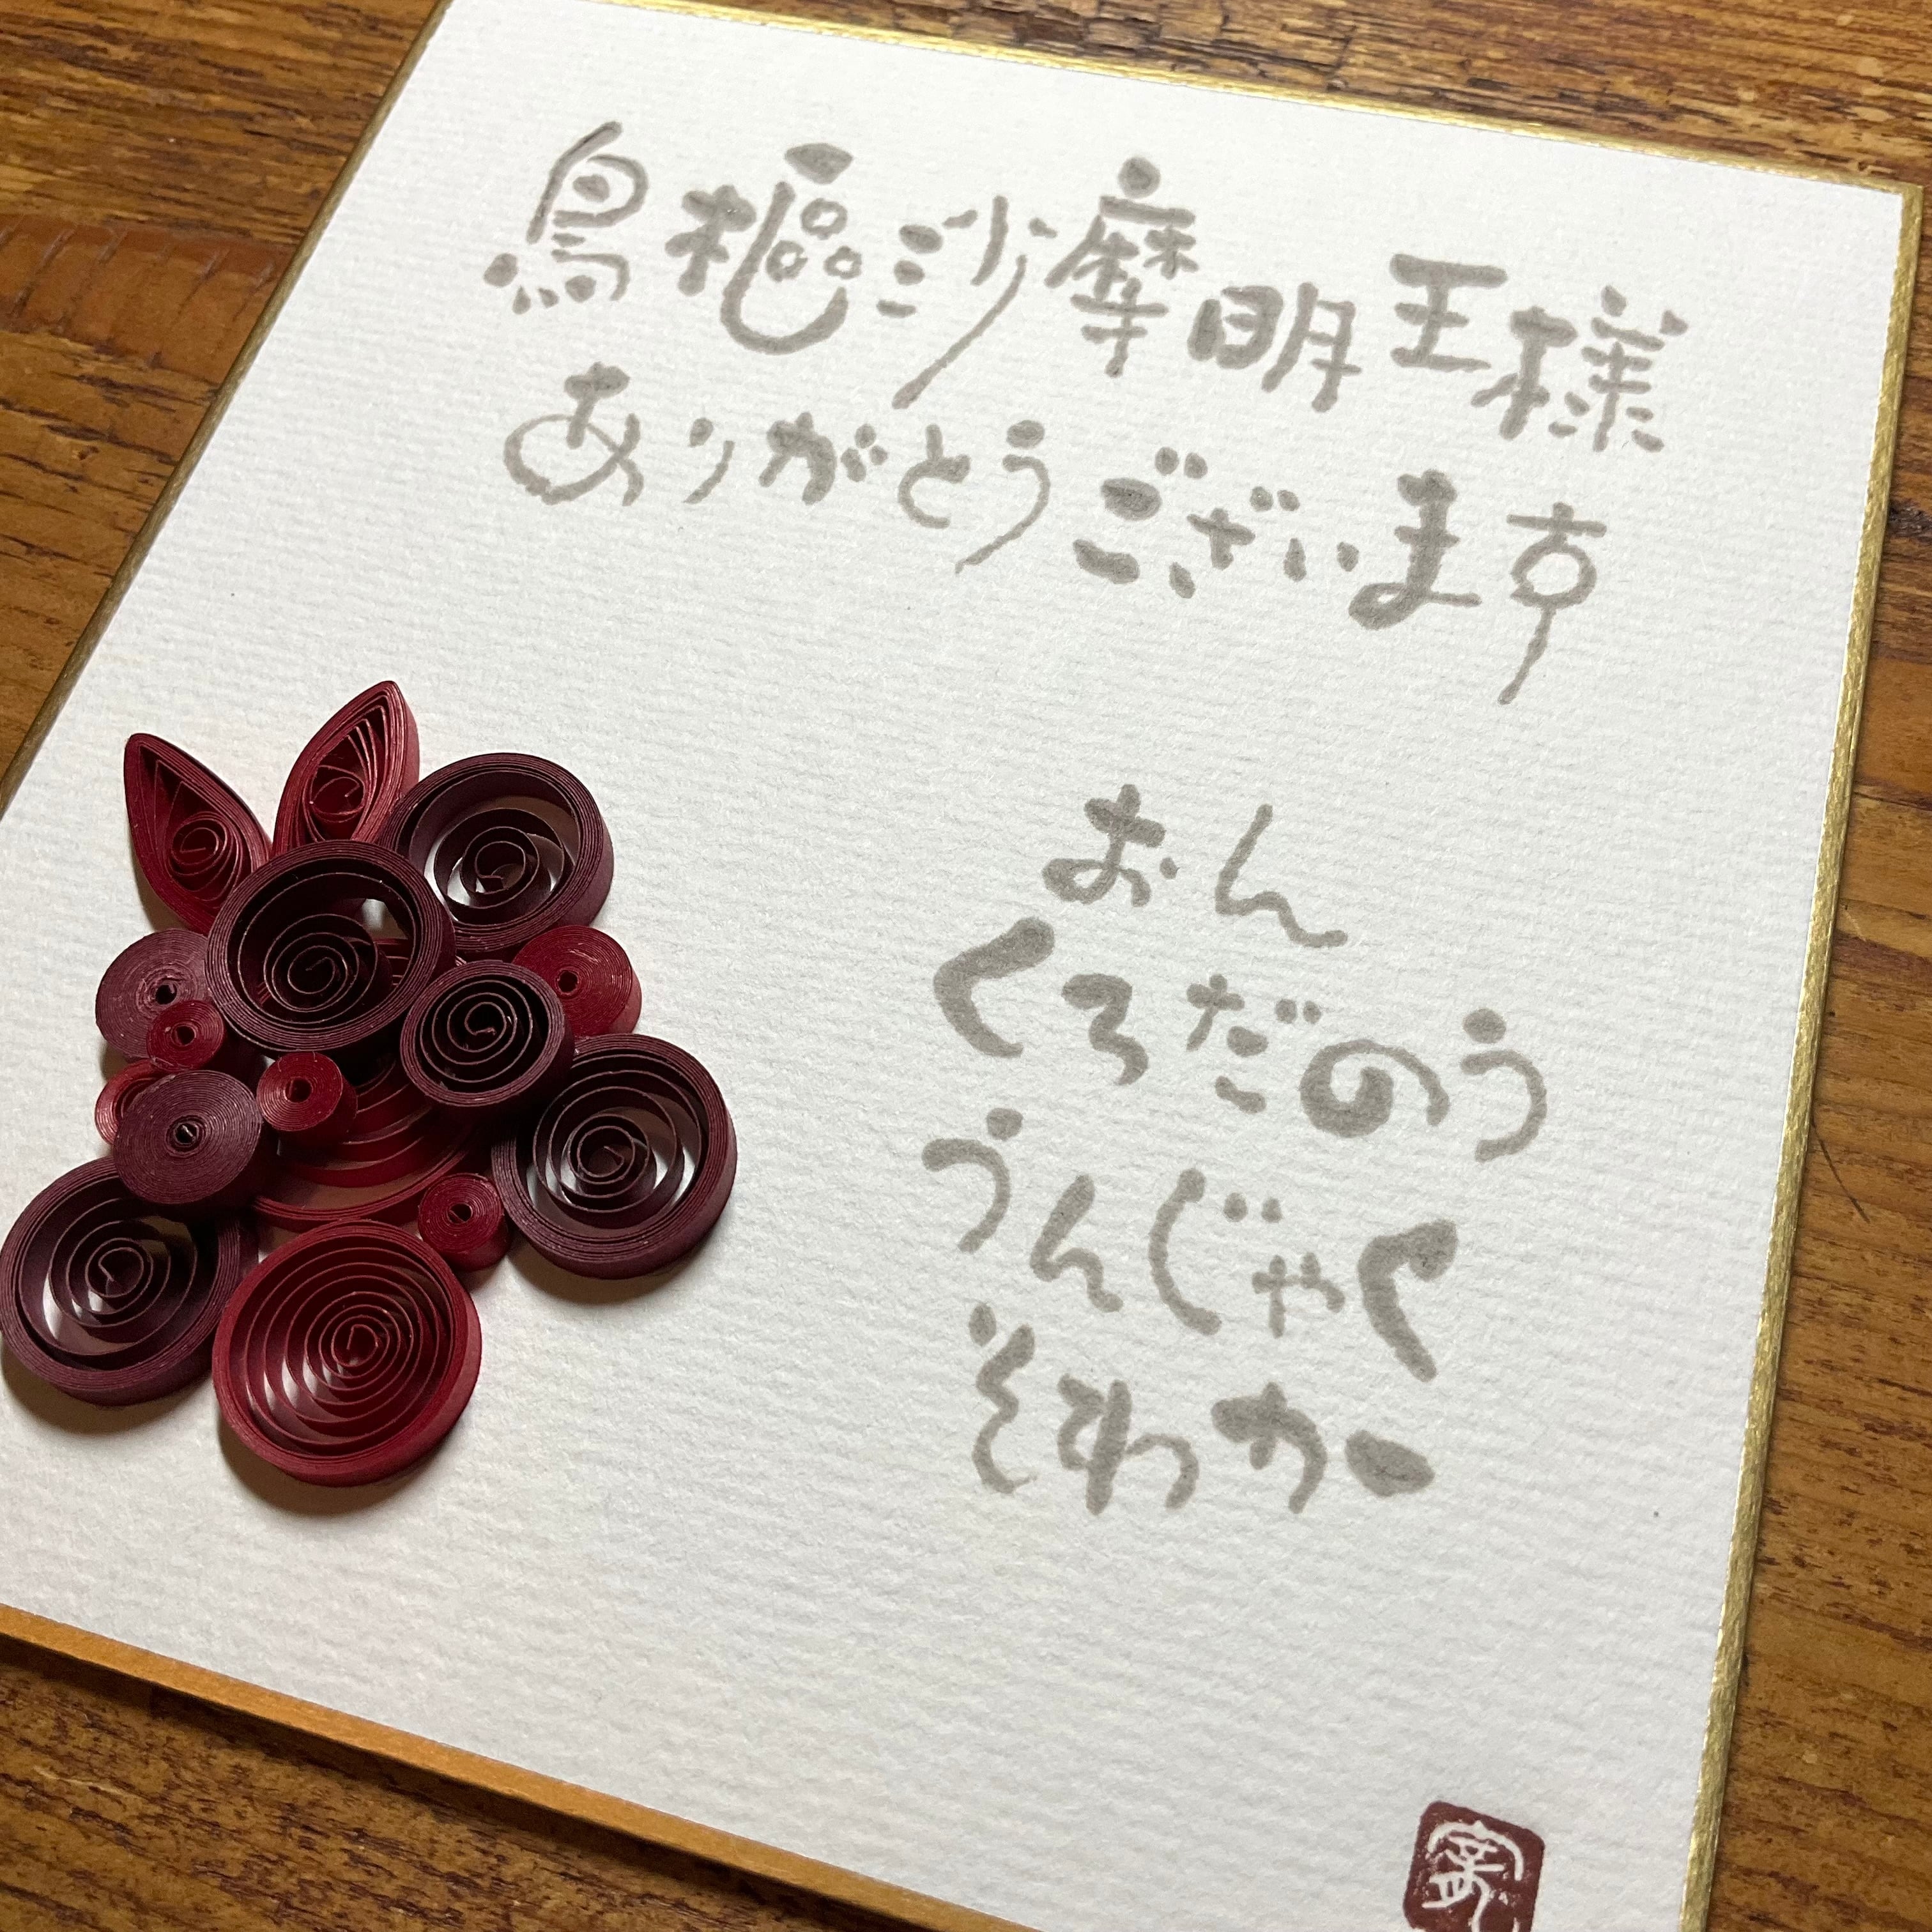 鳥樞沙摩明王様
ありがとうございます
おん
くろだのう
うんじゃく
そわか